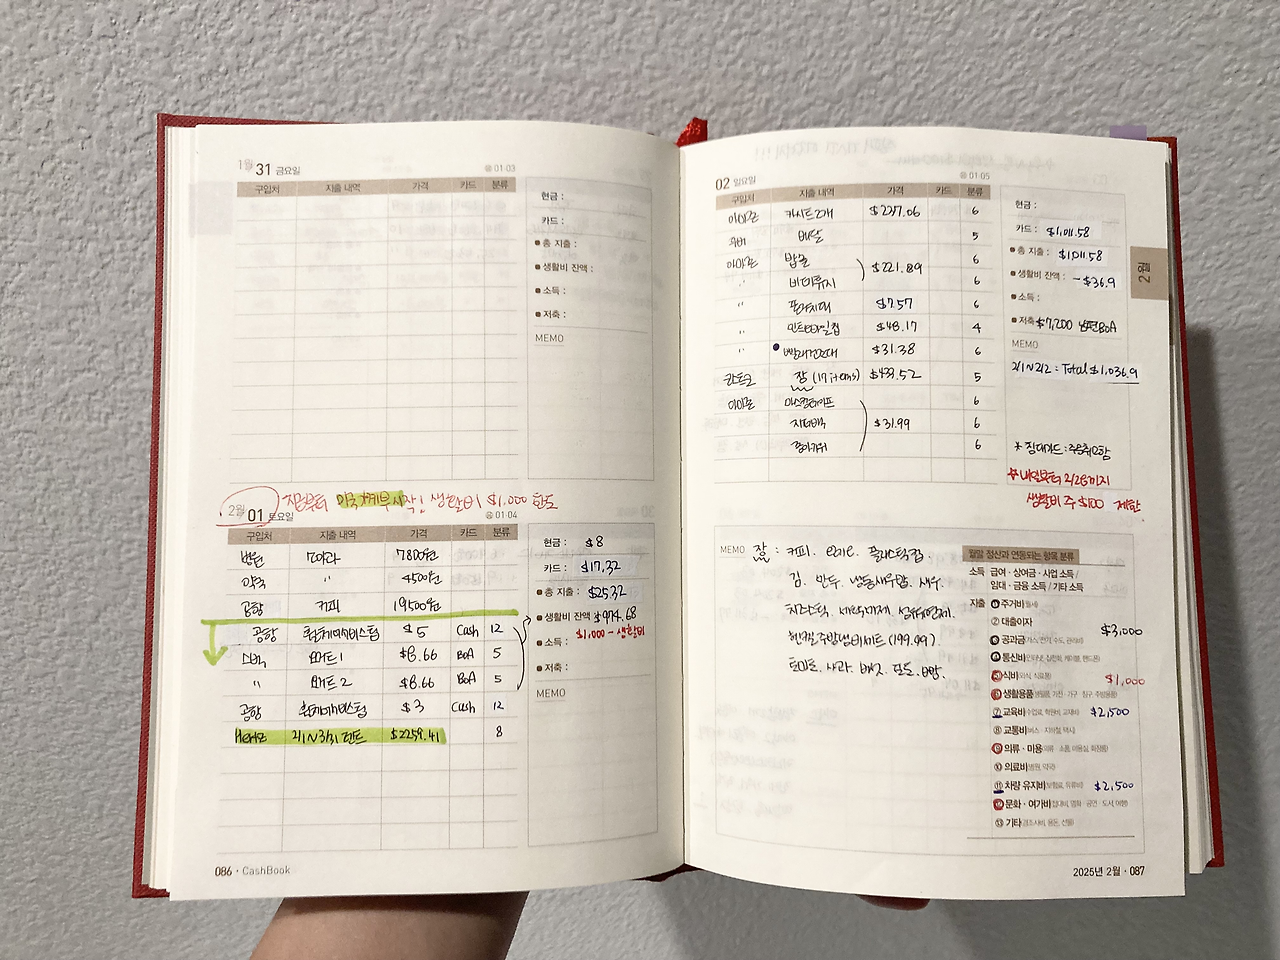 1월 31 금요일 음 01·03
구입처 지출 내역 가격 카드 분류
현금 :
카드 :
■ 총 지출 :
■ 생활비 잔액 :
■ 소득 :
■ 저축 :
MEMO
지금부터 미국 가계부 시작! 생활비 $1,000 한도
2월 01 토요일 음 01·04
구입처 지출 내역 가격 카드 분류
병원 7800원
약국 〃 4500원
공항 커피 19500원
공항 $5 Cash 12
스벅 1 $8.66 BoA 5
〃 2 $8.66 BoA 5
공항 $3 Cash 12
Hertz 2/1~3/31 렌트 $2259.41 8
현금 : $8
카드 : $17.32
■ 총 지출 : $25.32
■ 생활비 잔액 : $974.68
$1,000 - 생활비
■ 소득 :
■ 저축 :
MEMO
086 · CashBook
02 일요일 음 01·05
구입처 지출 내역 가격 카드 분류
아마존 카시트 2개 $227.06 6
배달 5
아마존 밥솥 6
〃 $221.89 6
〃 $7.57 6
〃 $48.17 4
〃 빨래건조대 $31.38 6
코스트코 장 (17 items) $439.52 5
아마존 마스킹테이프 6
지퍼백 $31.99 6
종이 6
현금 :
카드 : $1,011.58
■ 총 지출 : $1,011.58
■ 생활비 잔액 : -$36.9
■ 소득 :
■ 저축 : $7,200 남편 BoA
MEMO
2/1~2/2 = Total $1,036.9
* 침대
* 내일부터 2/28까지
생활비 주 $100 제한
MEMO 장 : 커피. 플라스틱컵.
김. 만두. 냉동새우밥. 새우.
지퍼락. 세탁세제. 섬유유연제.
(199.99).
토마토. 사과. 버섯. 빵.
월말 정산과 연동되는 항목 분류
소득 급여 · 상여금 · 사업 소득 /
임대 · 금융 소득 / 기타 소득
지출 ① 주거비(월세) $3,000
② 대출이자
③ 공과금(가스/전기, 수도, 관리비)
④ 통신비(인터넷, 집전화, 케이블, 핸드폰)
⑤ 식비(외식, 식료품) $1,000
⑥ 생활용품(생필품, 가전 · 가구 · 침구, 주방용품)
⑦ 교육비(수업료, 학원비, 교재비) $2,500
⑧ 교통비(버스 · 지하철, 택시)
⑨ 의류 · 미용(의류 · 소품, 미용실, 화장품)
⑩ 의료비(병원, 약국)
⑪ 차량 유지비(보험료, 유류비) $2,500
⑫ 문화 · 여가비(입장비, 영화 · 공연 · 도서, 여행)
⑬ 기타(경조사비, 용돈, 선물)
2025년 2월 · 087
2월